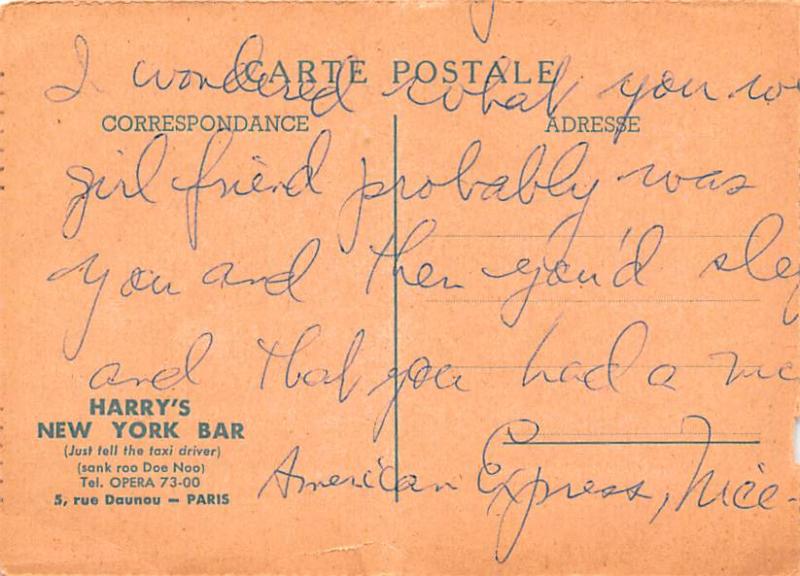 CARTE POSTALE
I wondered what you we
CORRESPONDANCE
ADRESSE
girl friend probably was
you and then you'd slep
and that you had a
HARRY'S
NEW YORK BAR
(Just tell the taxi driver)
(sank roo Doe Noo)
Tel. OPERA 73-00
5, rue Daunou — PARIS
American Express, Nice-